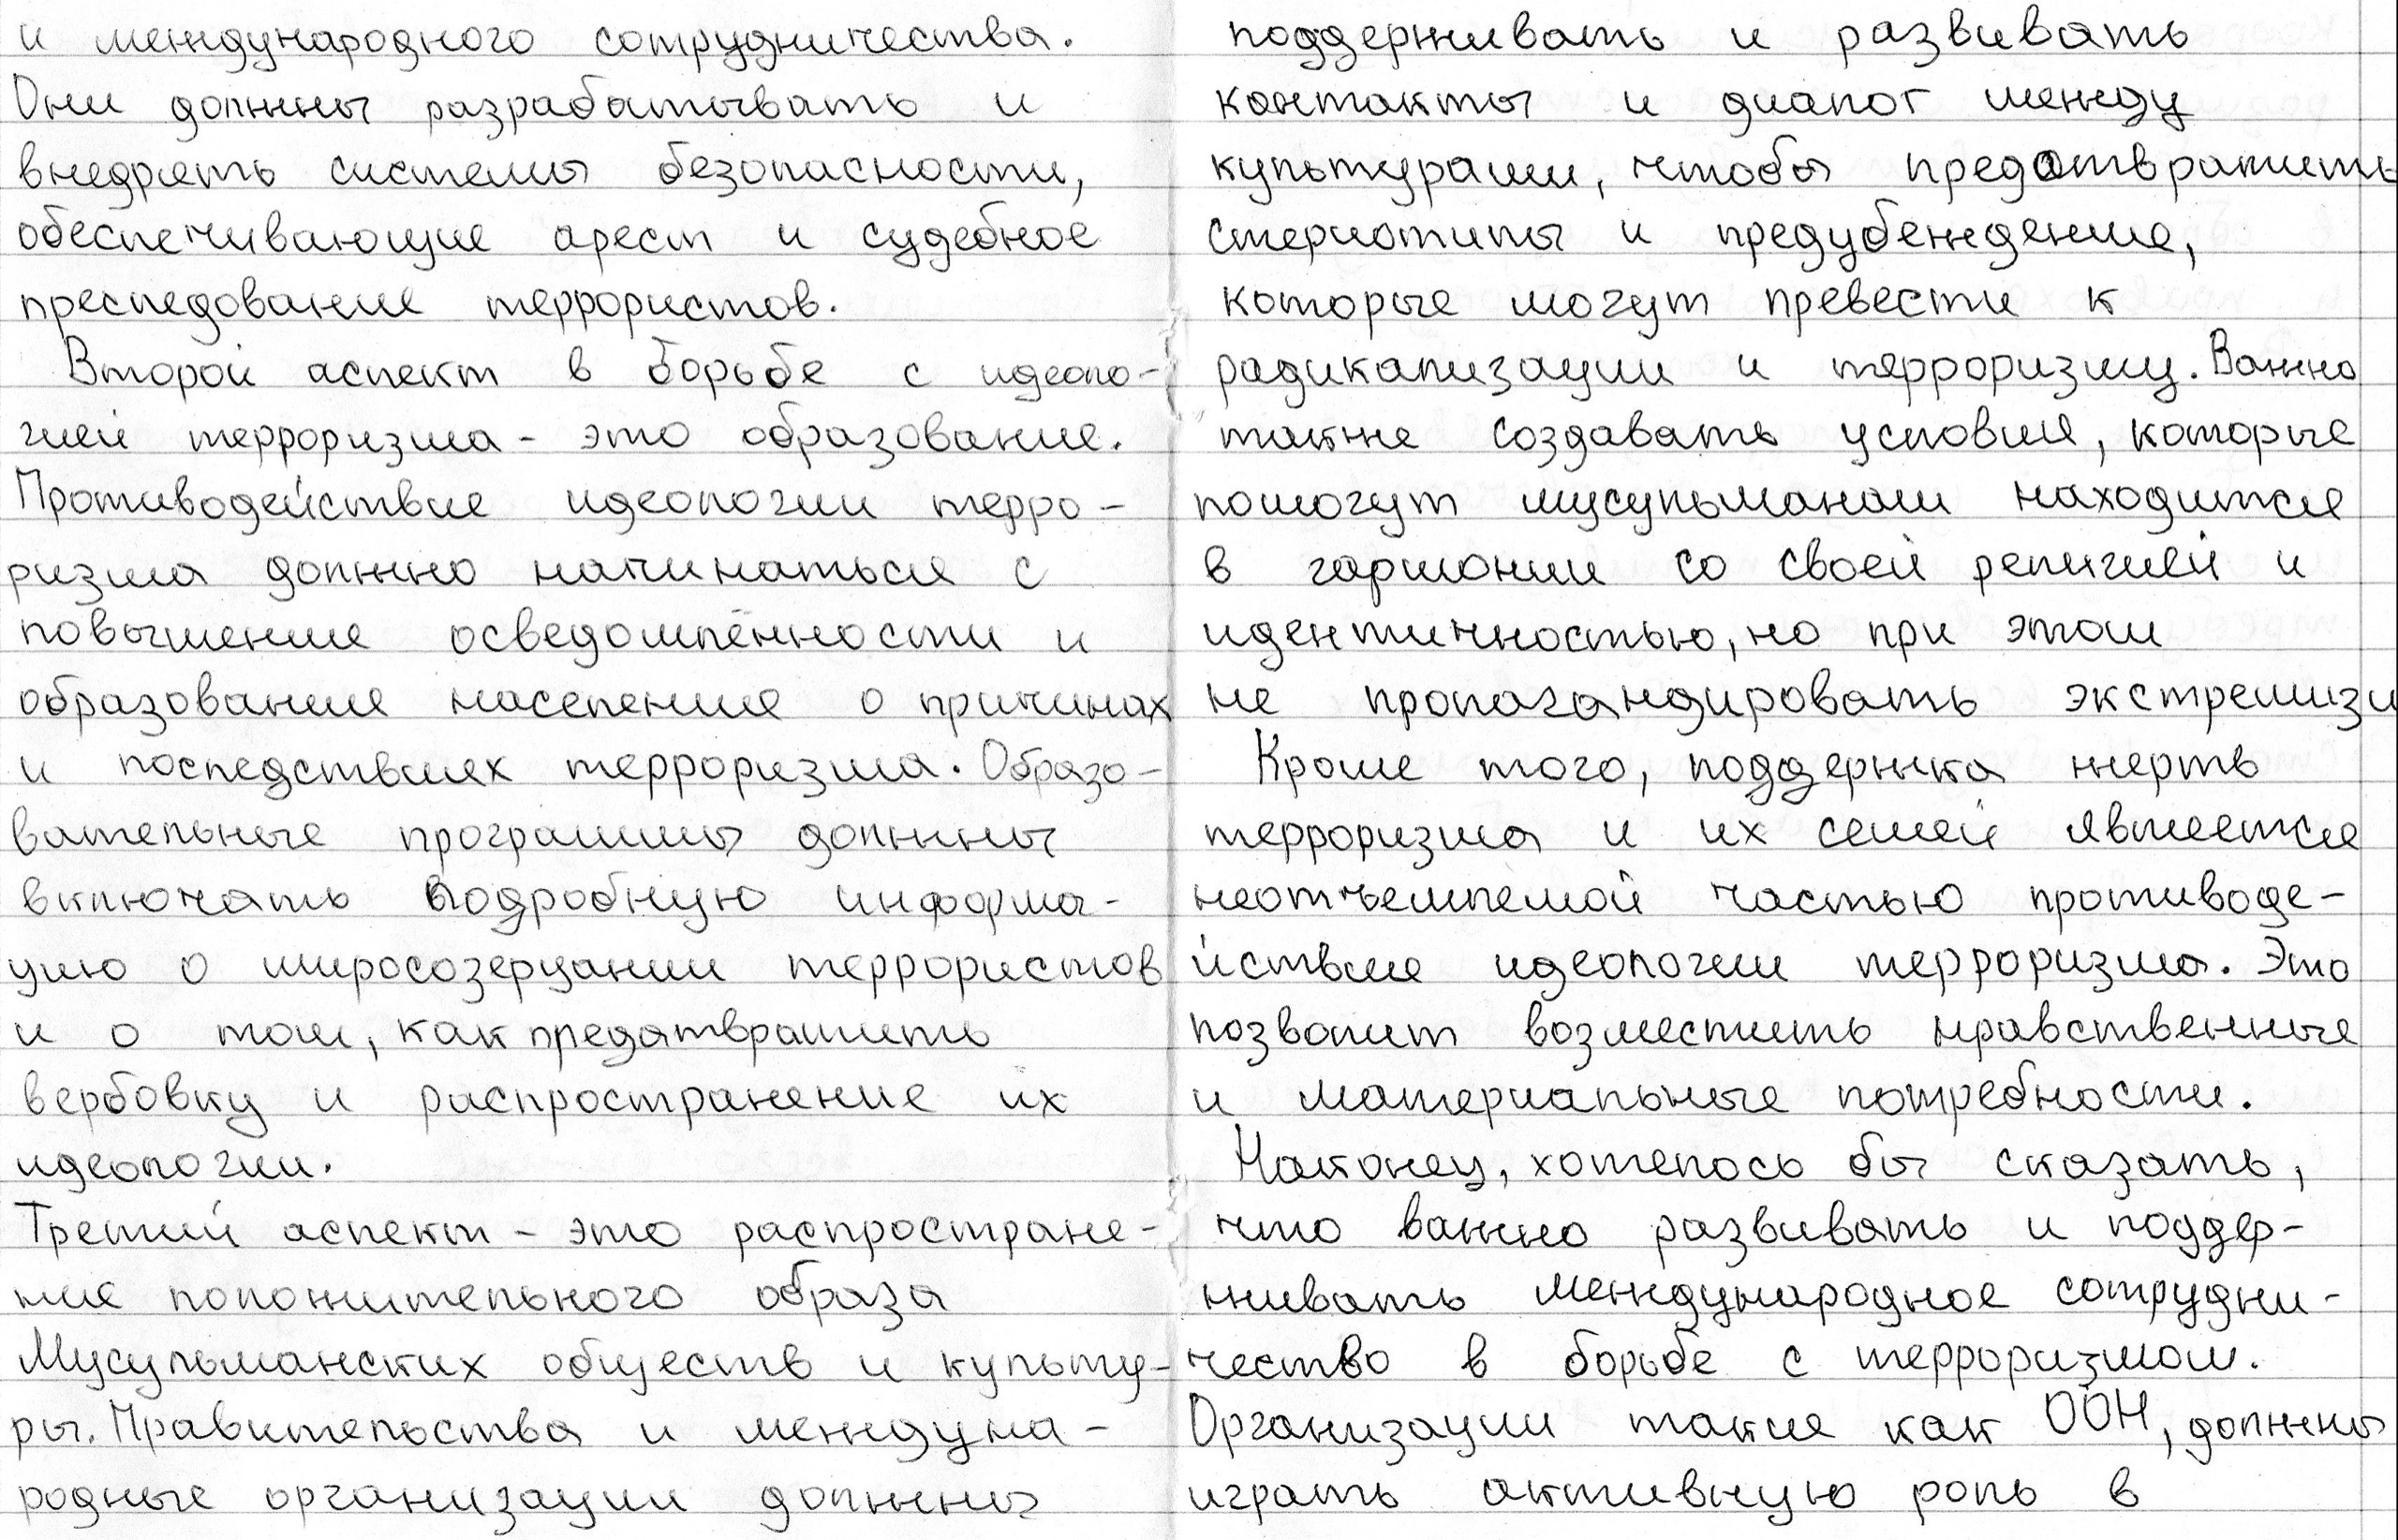 и международного сотрудничества.
Они должны разрабатывать и
внедрять системы безопасности,
обеспечивающие арест и судебное
преследование террористов.
Второй аспект в борьбе с идеоло-
гией терроризма - это образование.
Противодействие идеологии терро-
ризма должно начинаться с
повышение осведомлённости и
образование населения о причинах
и последствиях терроризма. Образо-
вательные программы должны
включать подробную информа-
цию о миросозерцании террористов
и о том, как предятвратить
вербовку и распространение их
идеологии.
Третий аспект - это распростране-
ние положительного образа
Мусульманских обществ и культу-
ры. Правительства и междуна-
родные организации должны
поддерживать и развивать
контакты и диалог между
культурами, чтобы предотвратить
стериотипы и предубеждение,
которые могут превести к
радикализации и терроризму. Важно
также создавать условия, которые
помогут мусульманам находится
в гармонии со своей религией и
идентичностью, но при этом
не пропагандировать экстремизм
Кроме того, поддержка жертв
терроризма и их семей является
неотъемлемой частью противоде-
йствие идеологии терроризма. Это
позволит возместить нравственные
и материальные потребности.
Наконец, хотелось бы сказать,
что важно развивать и поддер-
живать международное сотрудни-
чество в борьбе с терроризмом.
Организации такие как ООН, должны
играть активную роль в